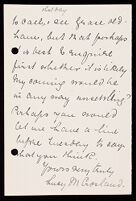 to call, see Grace and
Laura, but that perhaps
is best to enquire
first whether it is likely
my coming would be
in any way unsettling?
Perhaps you would
let me have a line
before Tuesday to say
what you think.
Yours very truly
Lucy M